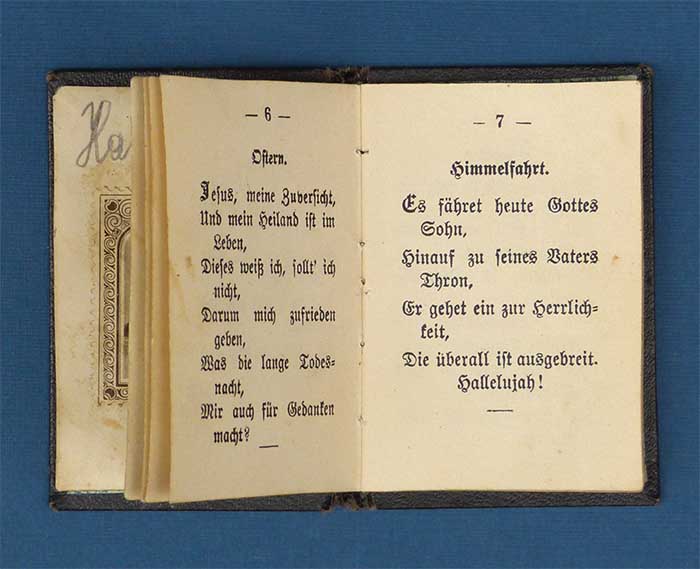 Ha
— 6 —
Ostern.
Jesus, meine Zuversicht,
Und mein Heiland ist im
Leben,
Dieses weiß ich, sollt' ich
nicht,
Darum mich zufrieden
geben,
Was die lange Todes-
nacht,
Mir auch für Gedanken
macht?
— 7 —
Himmelfahrt.
Es fähret heute Gottes
Sohn,
Hinauf zu seines Vaters
Thron,
Er gehet ein zur Herrlich-
keit,
Die überall ist ausgebreit.
Hallelujah!